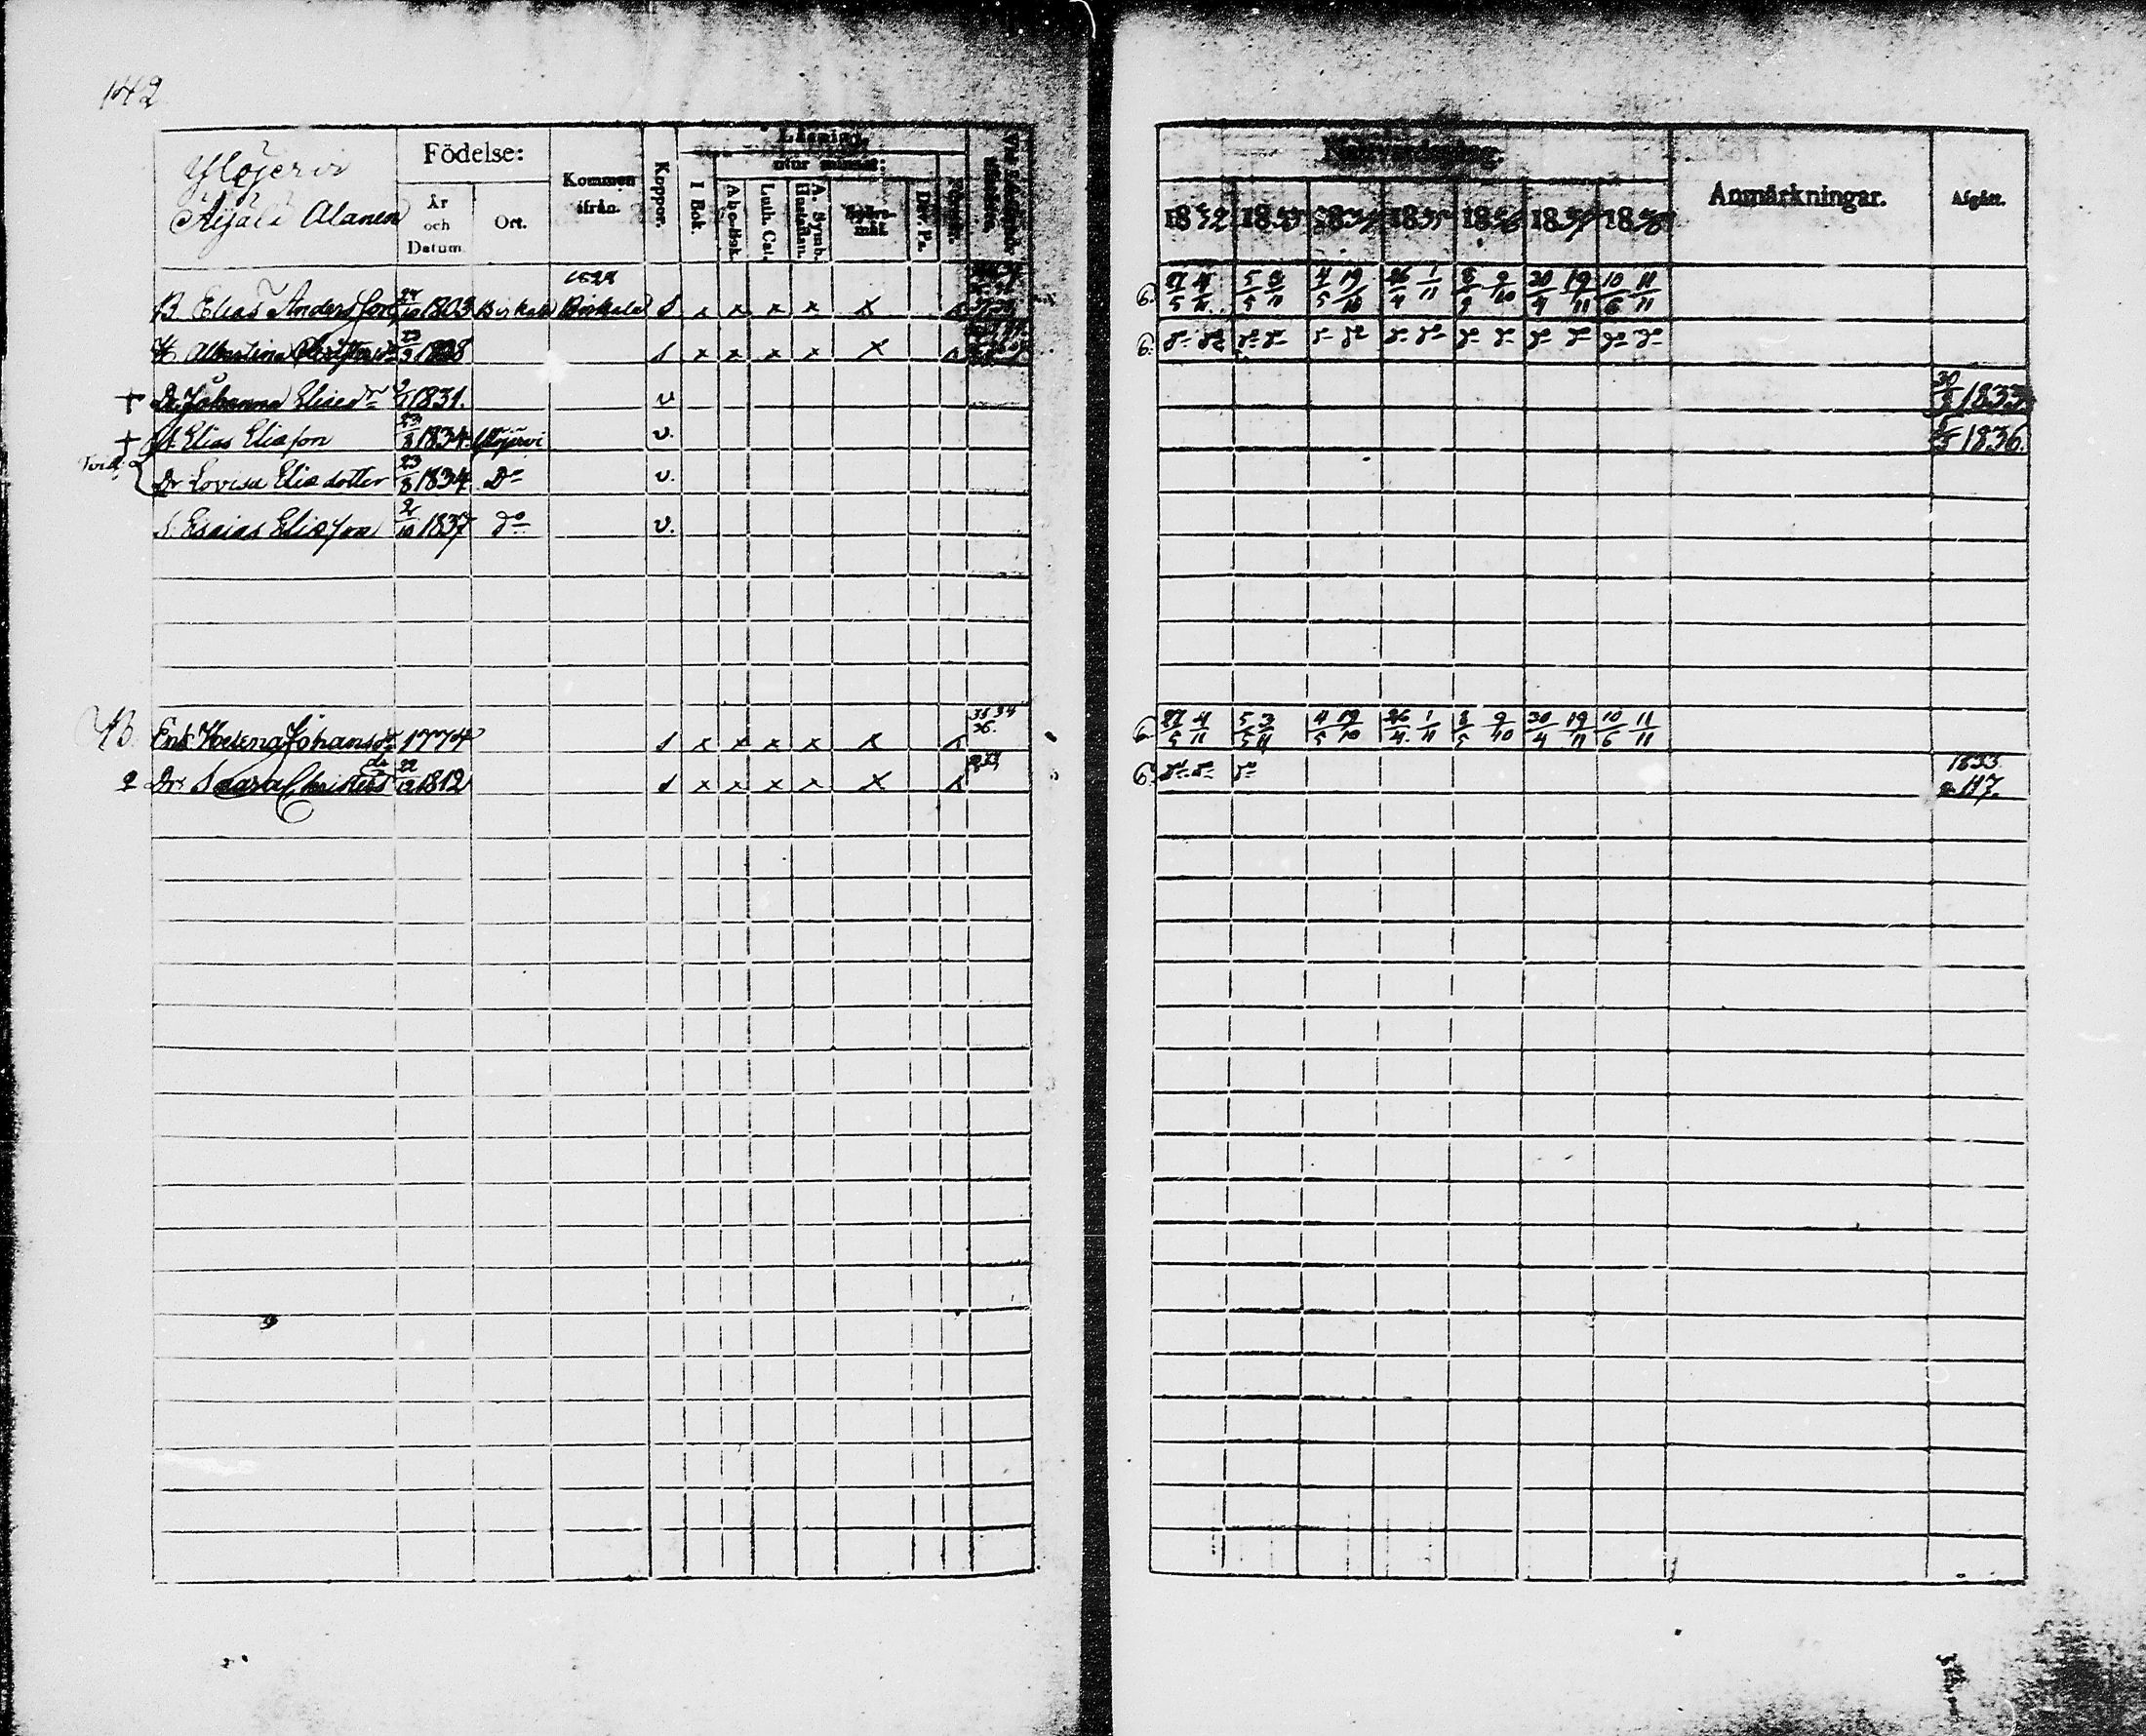 142
Ylöjervi
Äijälä Alanen
Födelse:
År och Datum
Ort.
Kommen ifrån.
Koppor.
Läsning.
utur minnet:
I Bok.
A b c-Bok.
Luth. Cat.
A. Symb.
Dav. Ps.
B Elias Andersson 24/10 1803 Birkala 1828 Birkala s x x x x x
H Albertina 23/9 1808 s x x x x x
+ Dr Johanna Eliædr 1831. v
+ S. Elias Eliæson 23/8 1834 Ylöjervi v.
Dr Lovisa Eliædotter 23/8 1834 Do v.
S. Esaias Eliæson 2/10 1837 do v.
Enk Helena Johansdr 1774 s x x x x x 35 34 36.
Dr Saara Christersdr 22/12 1812 s x x x x x
Nattvardsgång.
1832 1833 1834 1835 1836 1837 1838
Anmärkningar.
Afgått.
6. 27/5 4/11 5/5 3/11 4/5 19/10 26/4 1/11 8/9 9/10 30/4 19/11 10/6 11/11
6. do do do do do do do do do do do do do do
30/8 1833
1836.
6. 27/5 4/11 5/5 3/11 4/5 19/10 26/4 1/11 8/5 9/10 30/4 19/11 10/6 11/11
6. do do do 1833
117.